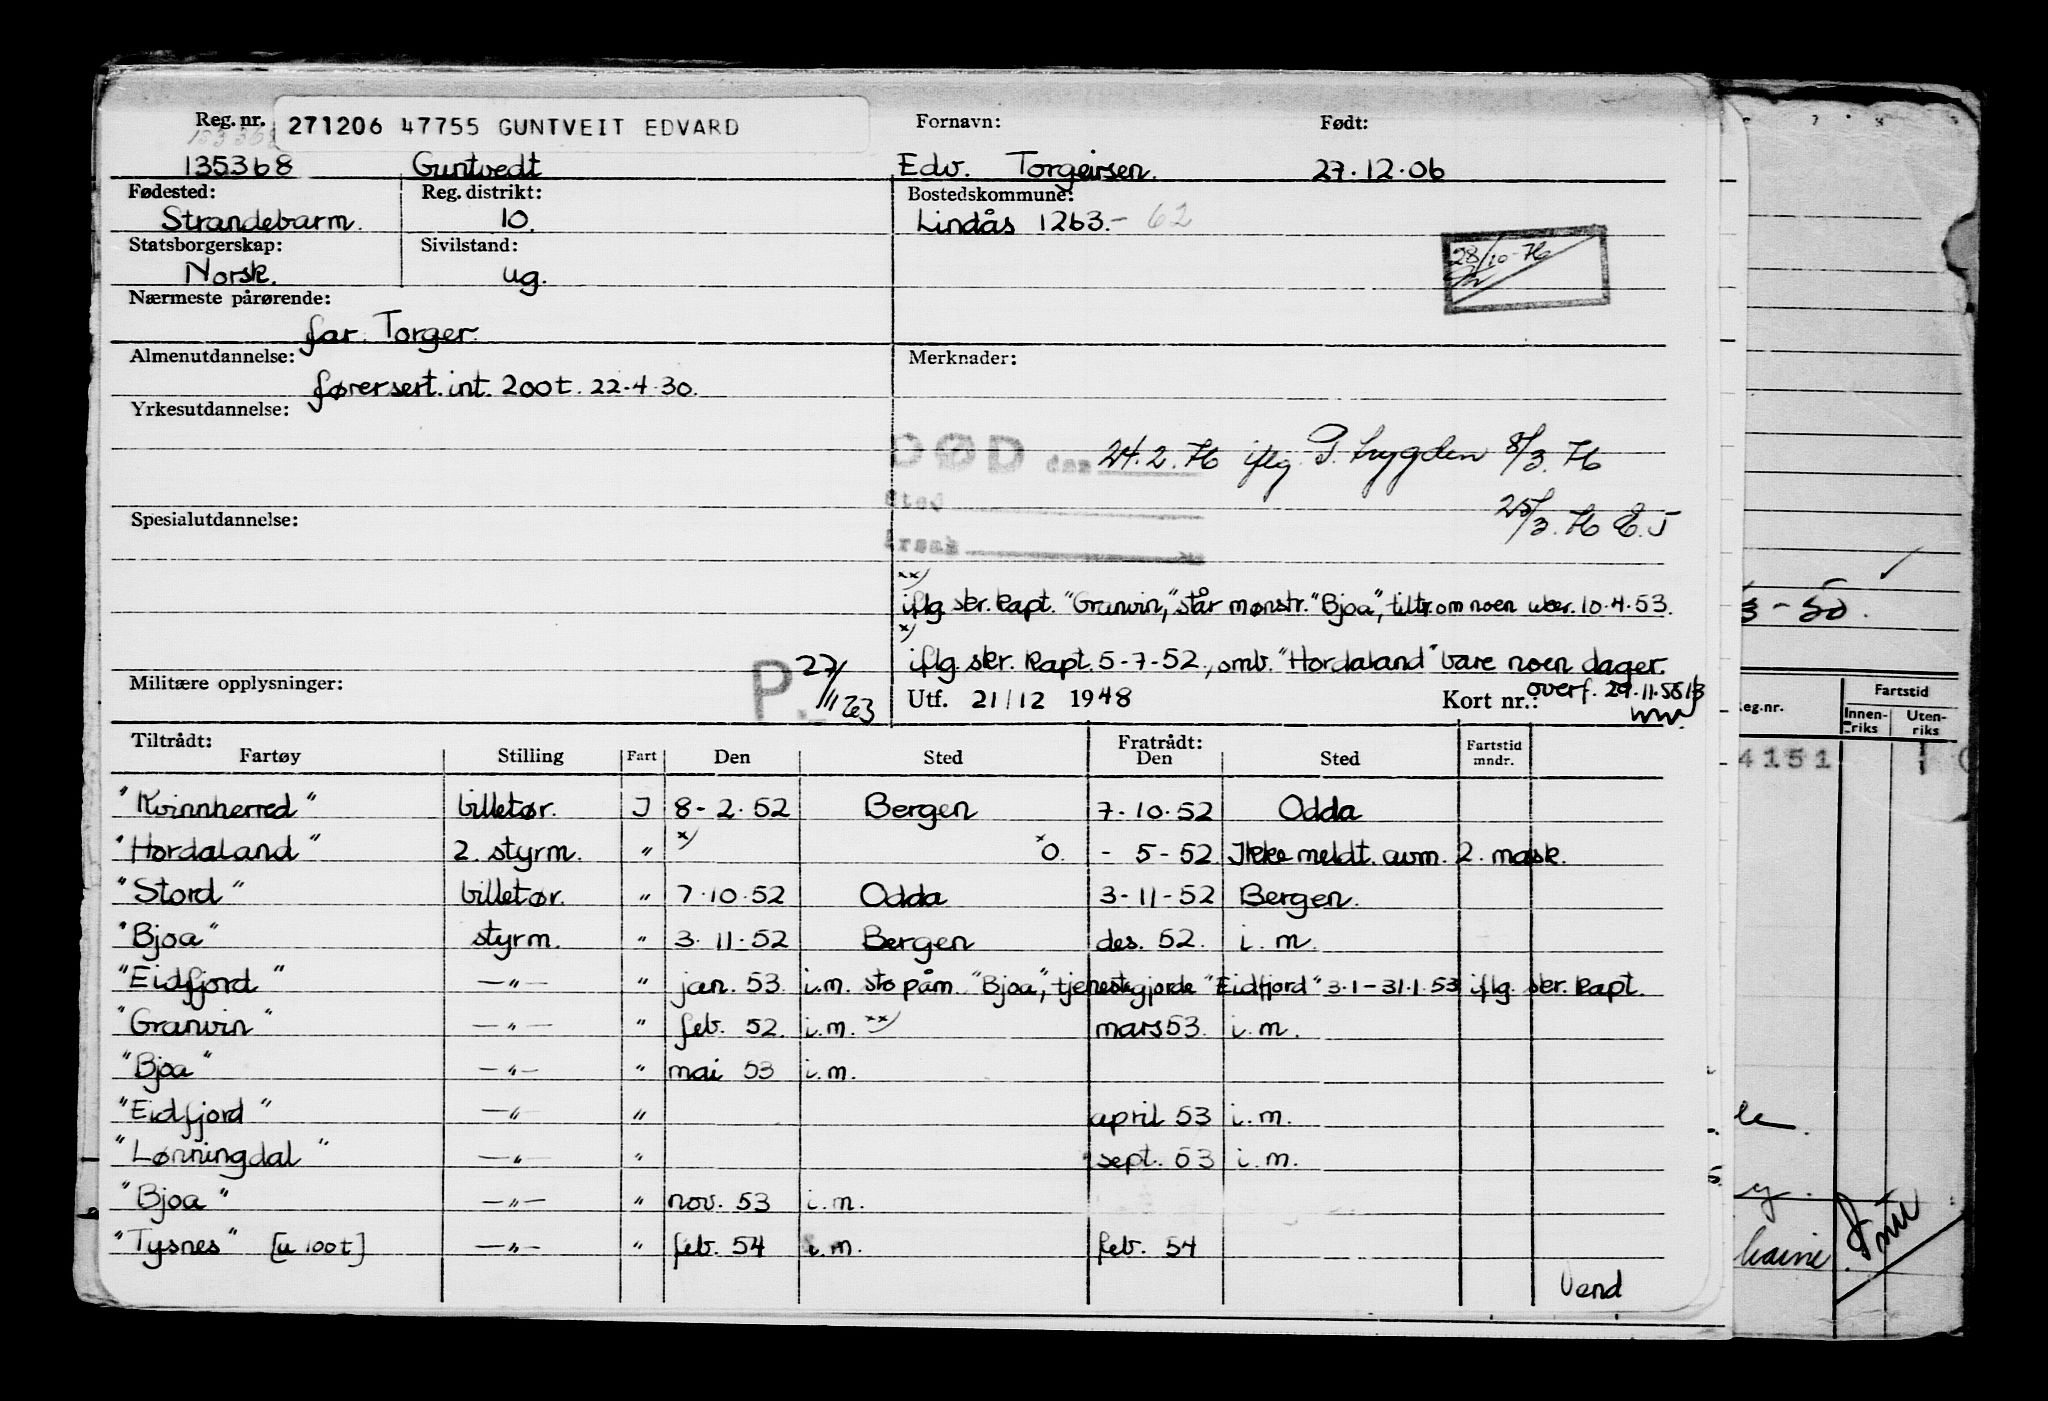 Reg. nr. 271206 47755 GUNTVEIT EDVARD Fornavn: Født:
135368 Guntvedt Edv. Torgeirsen. 27.12.06
Fødested: Reg. distrikt: Bostedskommune:
Strandebarm. 10. Lindås 1263.- 62
Statsborgerskap: Sivilstand:
Norsk. ug.
28/10-76
Nærmeste pårørende:
far. Torger.
Almenutdannelse: Merknader:
førersert. int. 200t. 22.4.30.
Yrkesutdannelse:
DØD den 24.2.76 iflg. P. trygden 8/3.76
Sted
25/3.76 E.J
Spesialutdannelse:
Årsak
xx) iflg skr. kapt. "Granvin," står mønstr. "Bjoa", tiltr. om noen uker. 10.4.53.
x) iflg. skr. kapt. 5-7-52., omb. "Hordaland" bare noen dager.
Militære opplysninger: P. 27/11 63 Utf. 21/12 1948 Kort nr.: overf. 29.11.55
Tiltrådt: Fratrådt:
Fartøy Stilling Fart Den Sted Den Sted Fartstid mndr.
"Kvinnherred" billetør. J 8-2.52 Bergen 7-10.52 Odda
"Hordaland" 2. styrm. " x) x O. - 5-52 Ikke meldt. avm. 2. mask.
"Stord" billetør. " 7.10.52 Odda 3-11-52 Bergen.
"Bjoa" styrm. " 3.11.52 Bergen des. 52. i.m.
"Eidfjord" —"— " jan. 53. i.m. sto påm. "Bjoa", tjenestgjorde "Eidfjord" 3.1-31.1.53 iflg. skr. kapt.
"Granvin" —"— " feb. 52. i.m. xx) mars 53. i.m.
"Bjoa" —"— " mai 53 i.m.
"Eidfjord" —"— " april 53 i.m.
"Lønningdal" —"— " sept. 53 i.m.
"Bjoa" —"— " nov. 53 i.m.
"Tysnes" [u 100t] —"— " feb. 54 i.m. feb. 54
Vend
3-50.
eg.nr. Fartstid
Innen-riks Uten-riks
4151 1